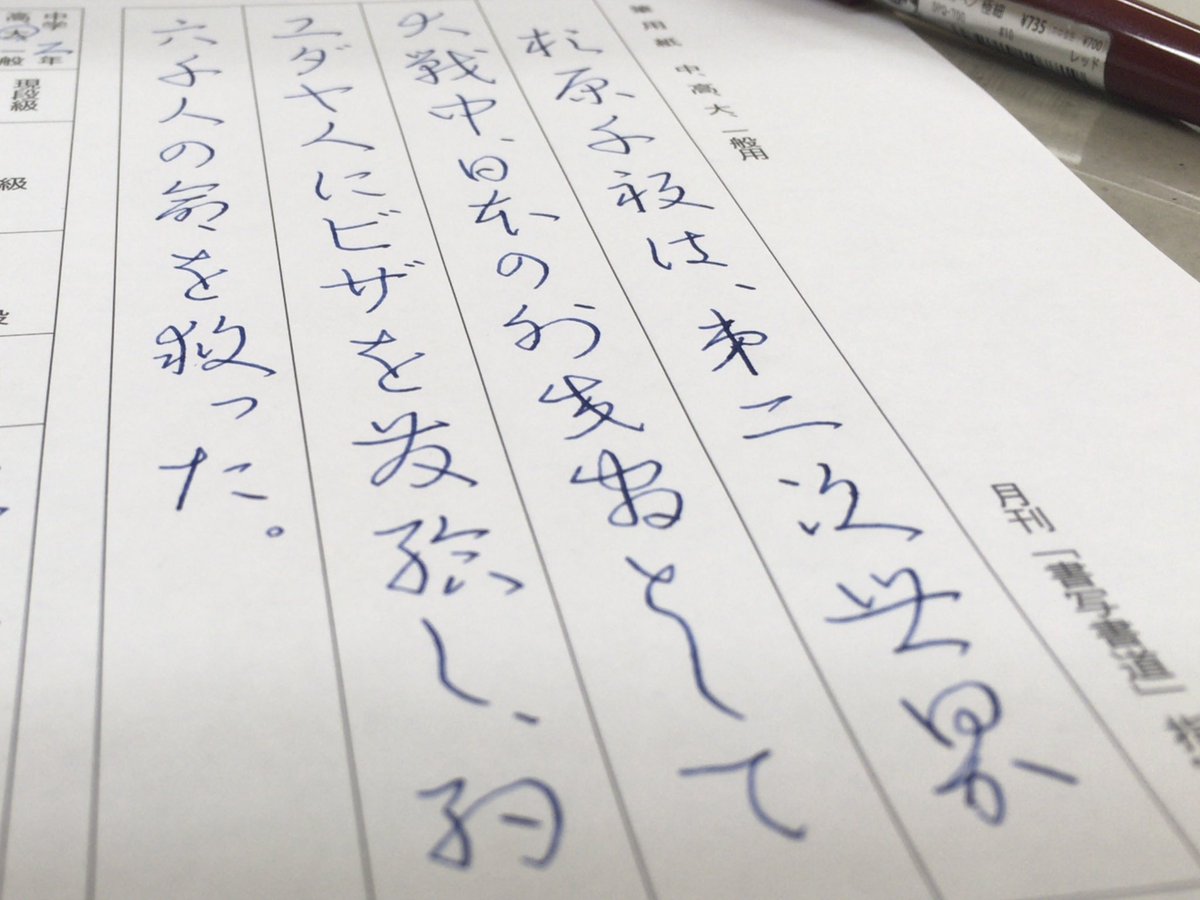 杉原千畝は、第二次世界
大戦中、日本の外交官として
ユダヤ人にビザを発給し、約
六千人の命を救った。
月刊「書写書道」
筆用紙 中、高、大、一般用
中学
高大一般
2年
現段級
級
¥735
¥700
レッド